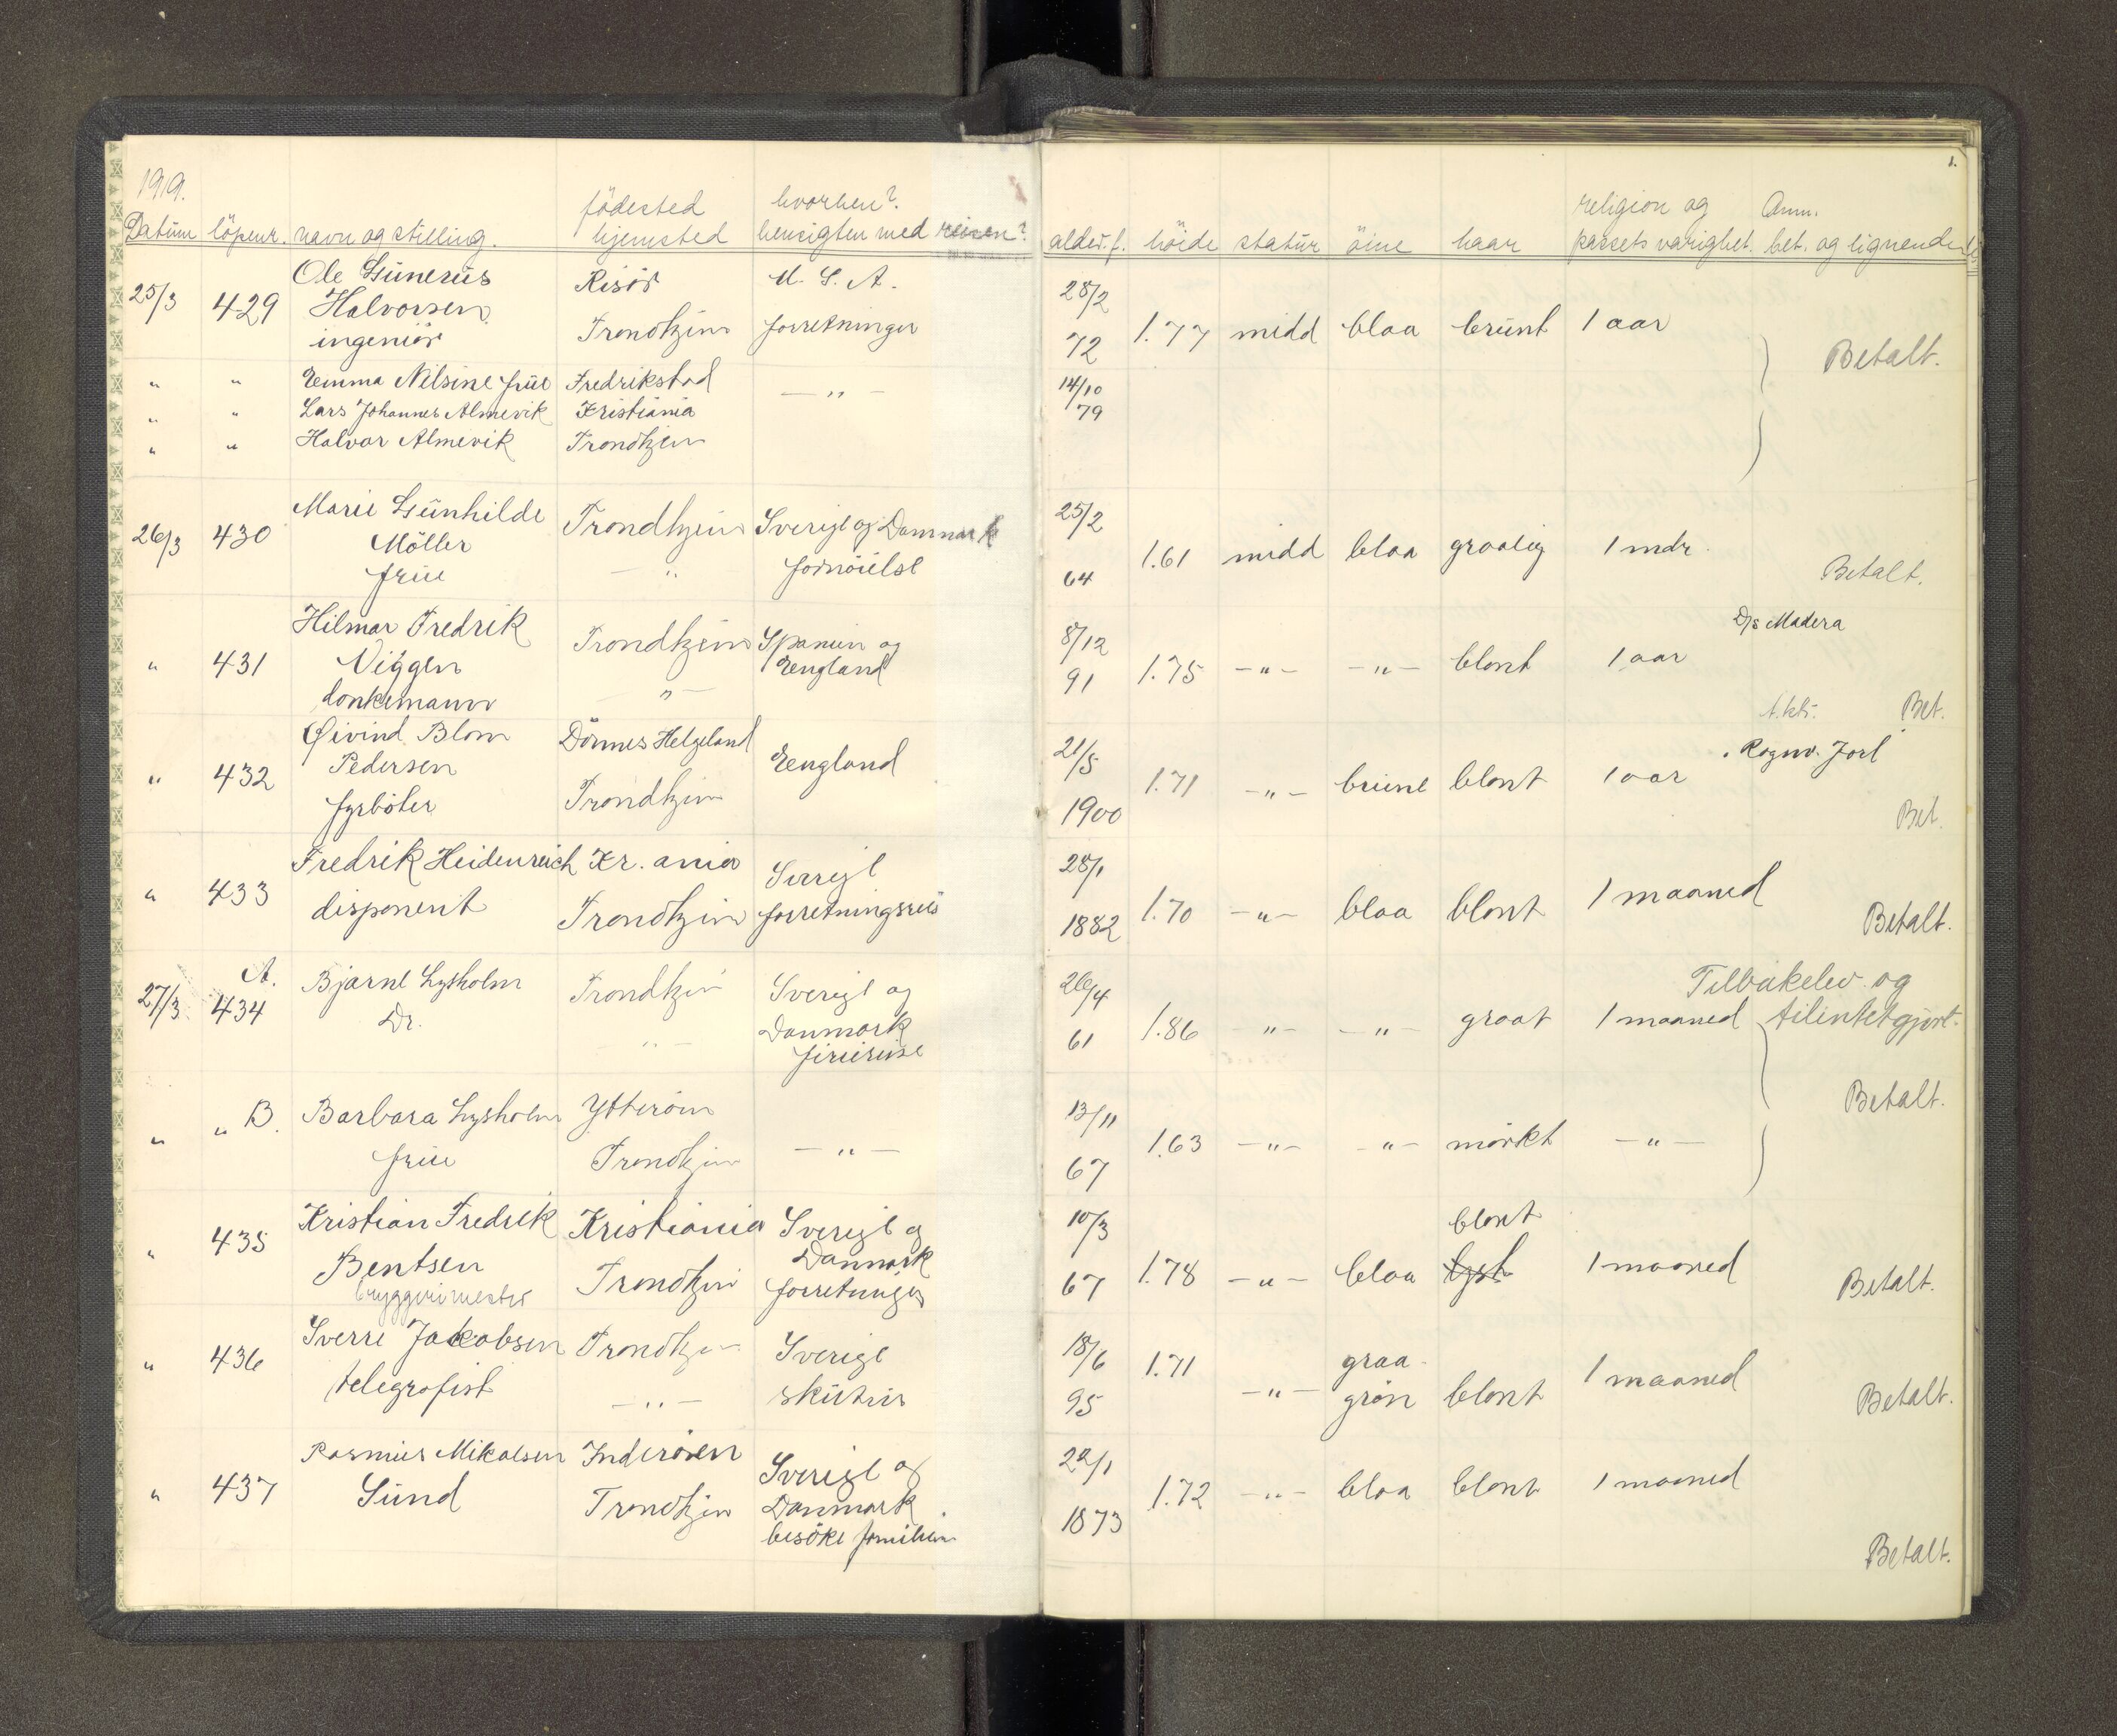 1919.
Datum löpenr. navn og stilling. födested hjemsted hvorhen? hensigten med reisen?
25/3 429 Ole Gunerius Risör U. S. A.
Halvorsen Trondhjem forretninger
ingeniör
" " Emma Nilsine frue Fredrikstad — " —
" " Lars Johannes Almevik Kristiania
" " Halvor Almevik Trondhjem
26/3 430 Marie Gunhilde Trondhjem Sverige og Danmark
Möller
frue — " fornöielse
" 431 Hilmar Fredrik Trondhjem Spanien og
Viggen England
donkemann " —
" 432 Øivind Blom Dönnes Helgeland England
Pedersen
fyrböter Trondhjem
" 433 Fredrik Heidenreich Kr. ania Sverige
disponent Trondhjem forretningsreis
27/3 A. 434 Bjarne Lysholm Trondhjem Sverige og
Dr. — " — Danmark
feriereise
" " B. Barbara Lysholm Ytterøen — " —
frue Trondhjem
" 435 Kristian Fredrik Kristiania Sverige og
Bentsen Trondhjem Danmark
bryggerimester forretninger
" 436 Sverre Jakobsen Trondhjem Sverige
telegrafist — " — skituer
" 437 Rasmus Mikalsen Inderöen Sverige og
Sund Trondhjem Danmark
besöke familien
1.
alder. f. höide statur öine haar religion og passets varighet. Anm. bet. og lignende
28/2
72 1.77 midd blaa brunt 1 aar Betalt.
14/10
79
25/2
64 1.61 midd blaa graalig 1 mdr. Betalt.
8/12 D/s Madera
91 1.75 — " — — " — blont 1 aar
Bet.
21/5 Ragnv. Jarl
1900 1.71 — " — brune blont 1 aar
Bet.
28/1
1882 1.70 — " — blaa blont 1 maaned Betalt.
26/4 Tilbakelev. og
61 1.86 " — — " — graat 1 maaned tilintetgjort.
Betalt.
13/11
67 1.63 — " — " — mörkt — " —
10/3 blont
67 1.78 — " — blaa lyst 1 maaned Betalt.
18/6 1.71 graa-
95 — " — grön blont 1 maaned Betalt.
22/1
1873 1.72 — " — blaa blont 1 maaned
Betalt.